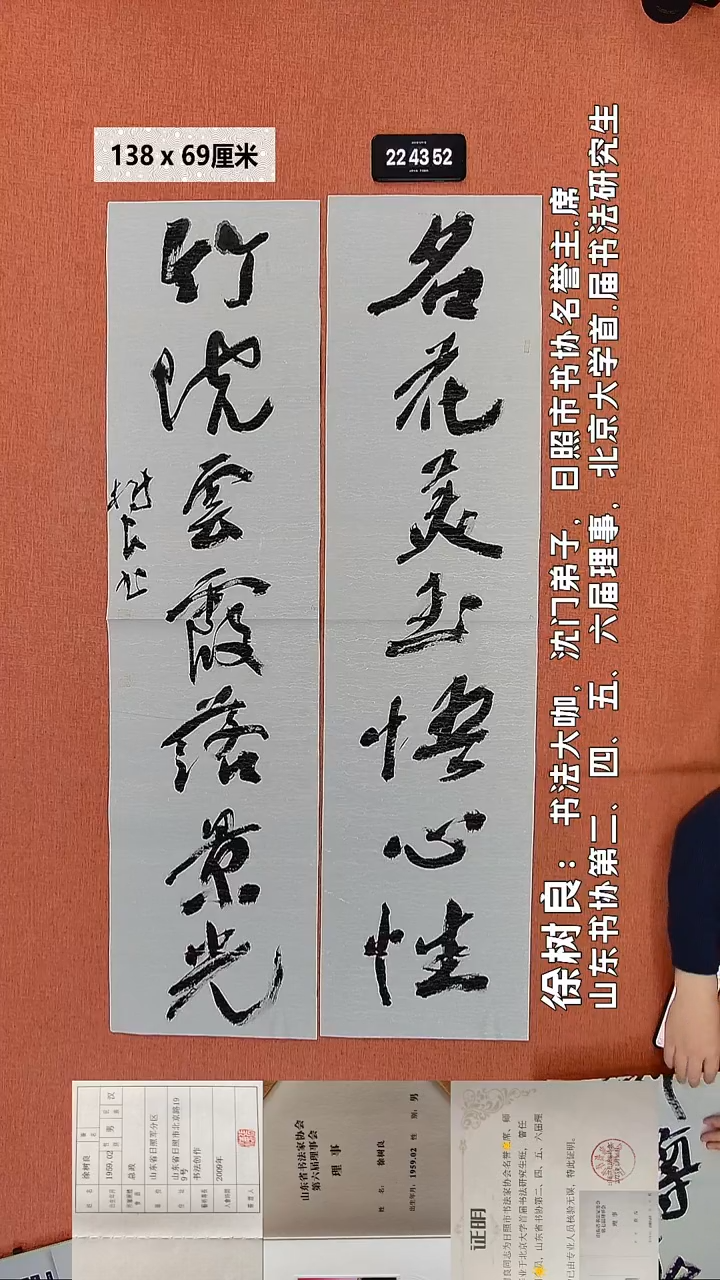 138 x 69厘米
22 43 52
名花美玉悟心性
竹院雲霞落景光
樹良书
徐树良：书法大咖，沈门弟子，日照市书协名誉主.席
山东书协第二、四、五、六届理事，北京大学首.届书法研究生
姓名 徐树良
出生年月 1959.02 男 汉
山东省日照军分区
山东省日照市北京路19
9号
书法创作
2009年
山东省书法家协会
第六届理事会
理 事
姓 名： 徐树良
出生年月：1959.02 性 别：男
证明
良同志为日照市书法家协会名誉主席、师
业于北京大学首届书法研究生班，曾任
员，山东省书协第二、四、五、六届理
已由专业人员核验无误，特此证明。